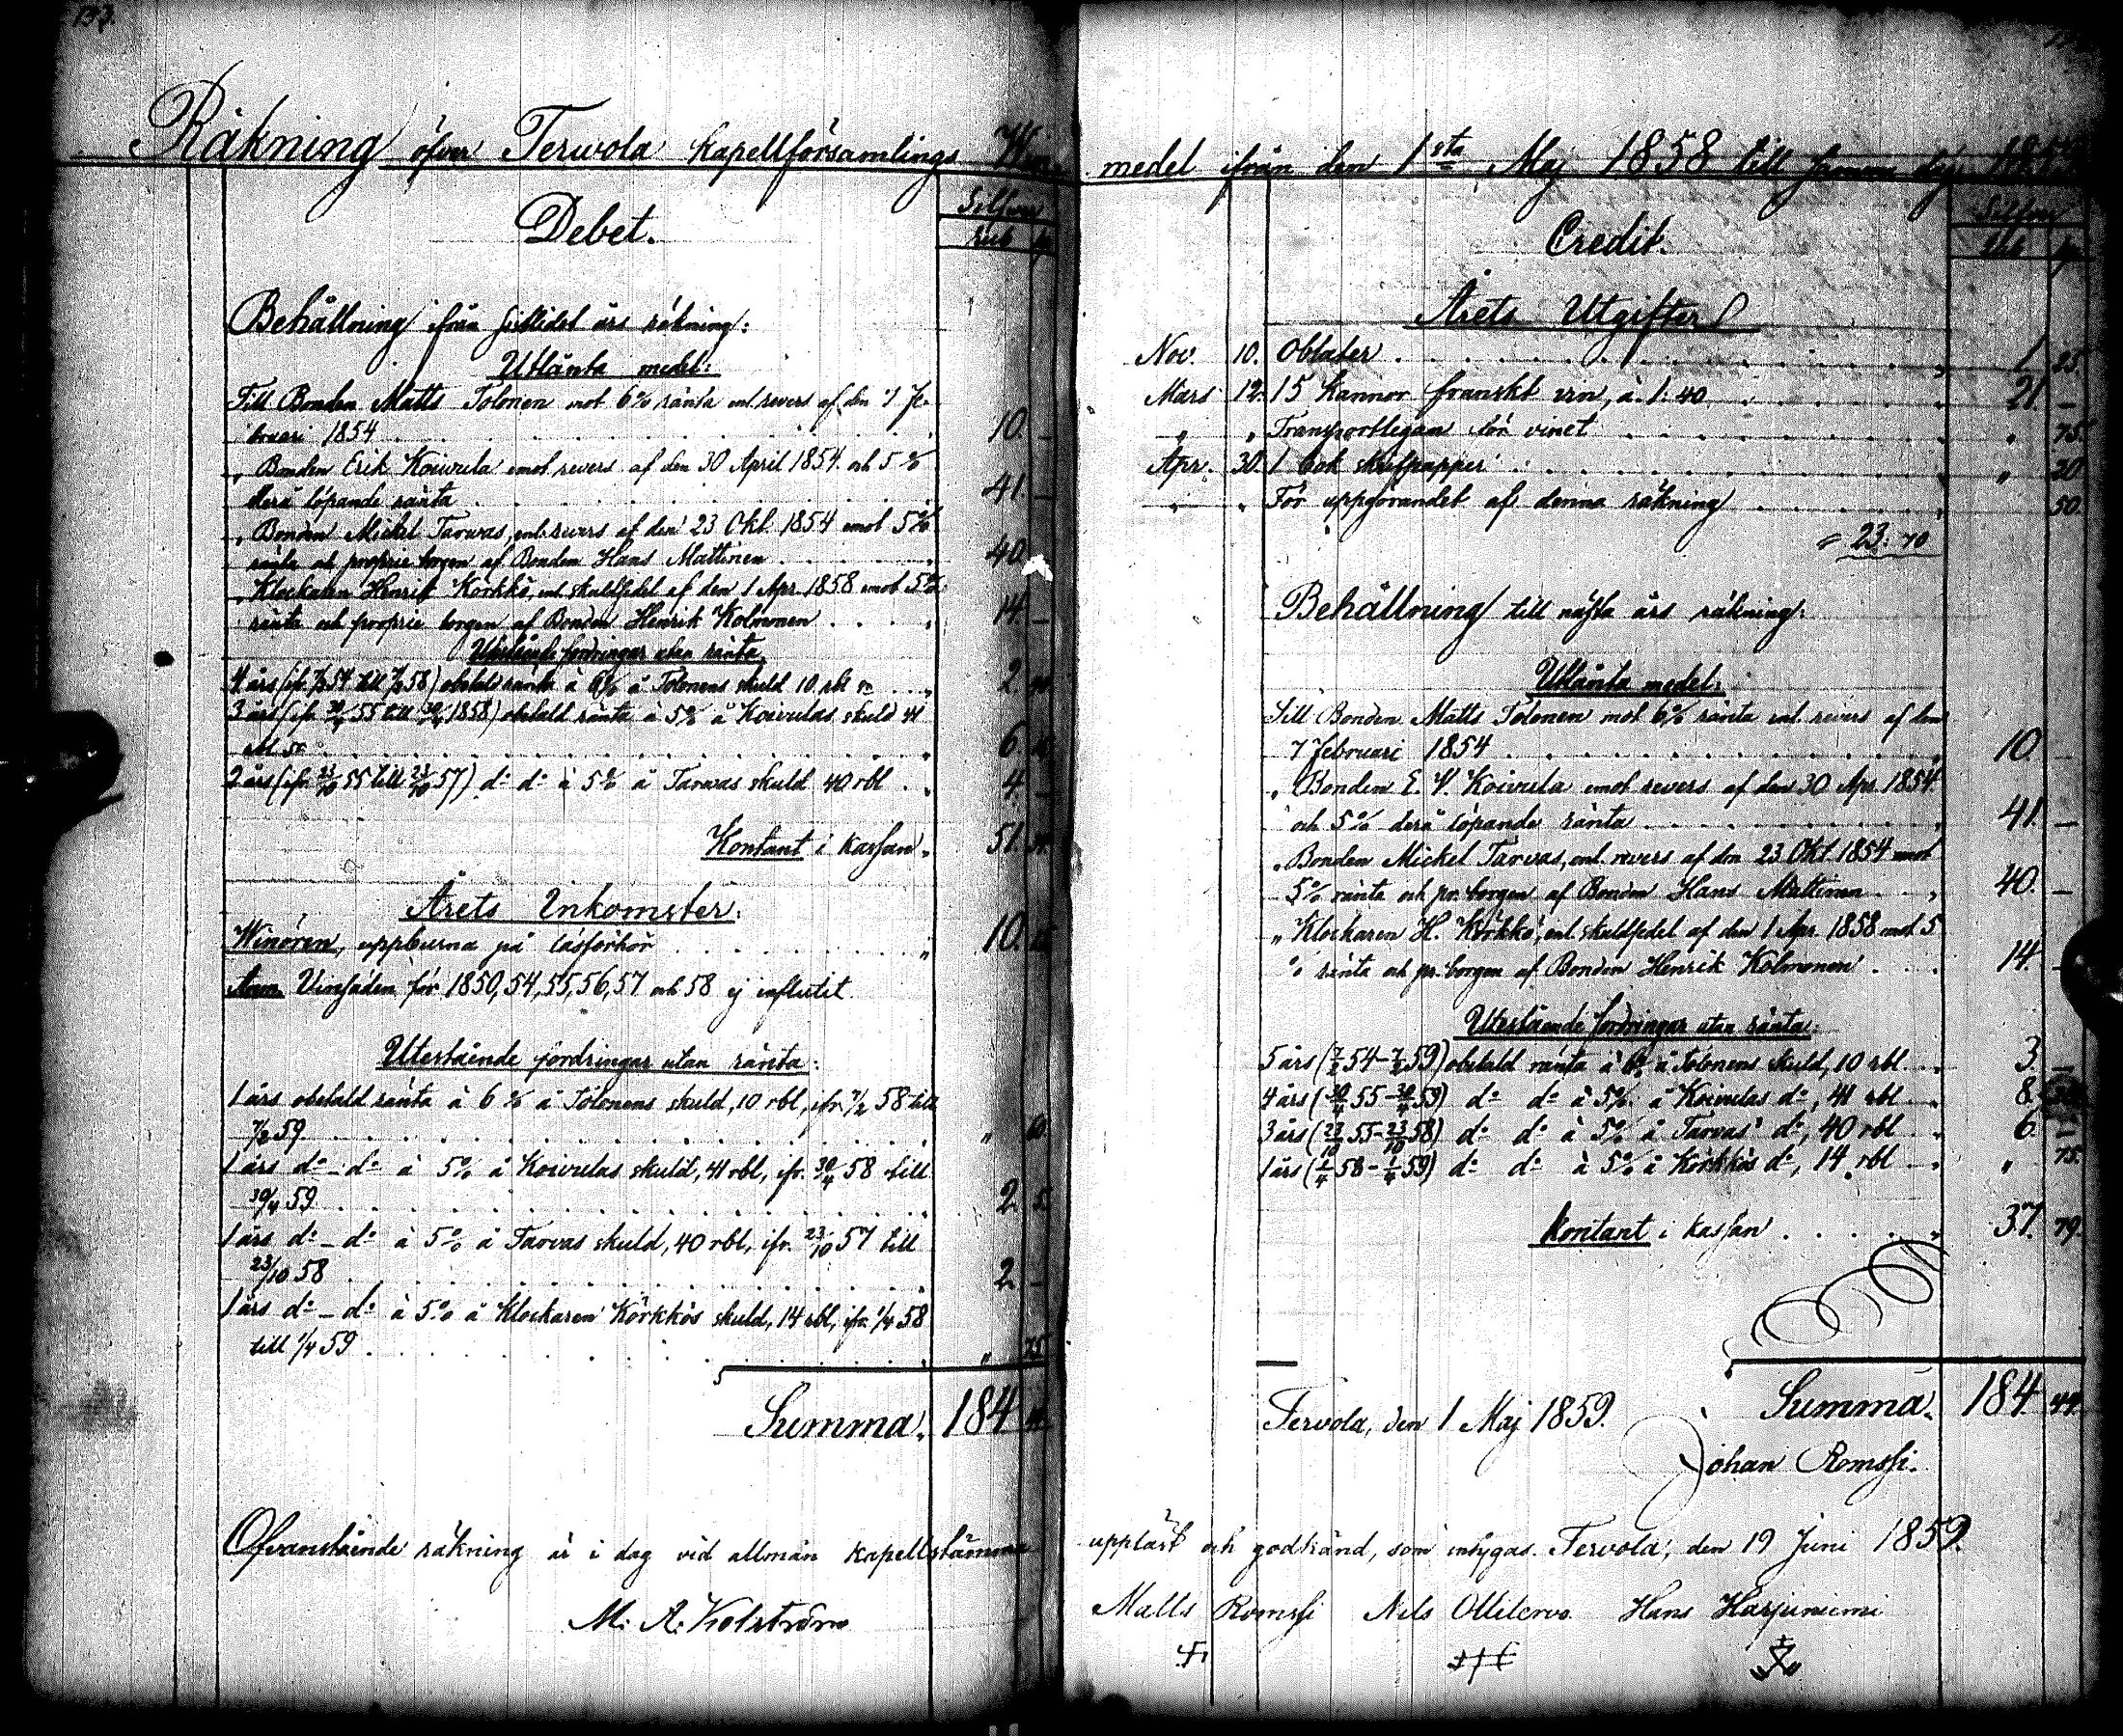 133.
Räkning öfver Terwola kapellförsamlings Win
Debet.
Silfver
Rub k
Behållning ifrån sistlidet års räkning:
Utlånta medel:
Till Bonden Matts Tolonen mot 6% ränta enl. revers af den 7 Fe-
bruari 1854 . . . 10. –
„ Bonden Erik Koivula emot revers af den 30 April 1854 och 5 %
derå löpande ränta . . . 41. –
„ Bonden Mickel Tarwas, enl. revers af den 23 Okt. 1854 emot 5%
ränta och proprie borgen af Bonden Hans Mattinen . . . 40.
„ Klockaren Henrik Körkkö, enl. skuldsedel af den 1 Apr. 1858 emot 5%
ränta och proprie borgen af Bonden Henrik Kolmonen . . . 14. –
Utestående fordringar utan ränta
4 års (ifr. 7/2 54 till 7/2 58) obetald ränta à 6% å Tolonens skuld 10 rbl sr . . . 2.
3 års (ifr. 30/4 55 till 30/4 1858) obetald ränta à 5% å Koivulas skuld 41
rbl sr . . . 6.
2 års (ifr. 23/10 55 till 23/10 57) do do à 5% å Tarwas skuld 40 rbl . . 4. –
Kontant i kassan „ 51.
Årets Inkomster:
Winören, uppburna på läsförhör . . . „ 10.
Anm. Vinsäden för 1850, 54, 55, 56, 57 och 58 ej influtit.
Utestående fordringar utan ränta:
1 års obetald ränta à 6 % å Tolonens skuld, 10 rbl, ifr. 7/2 58 till
7/2 59 . . . „ 60.
1 års do – do à 5% å Koivulas skuld, 41 rbl, ifr. 30/4 58 till
30/4 59 . . . 2. 5.
1 års do – do à 5% å Tarvas skuld, 40 rbl, ifr. 23/10 57 till
23/10 58 . . . 2. –
1 års do – do à 5% å Klockaren Körkkös skuld, 14 rbl, ifr. 1/4 58
till 1/4 59 . . . „ 75.
Summa „ 184
Ofvanstående räkning är i dag vid allmän kapellstämma
M. A. Kolström
medel ifrån den 1sta Maj 1858 till samma dag
Silfver
Rub k
Credit.
Årets Utgifter
Nov. 10. Oblater . . . „ 1. 25.
Mars 12. 15 kannor franskt vin, à 1: 40 . . . 21. –
„ „ Transportlegan för vinet . . . „ 75.
Apr. 30. 1 bok skrifpapper . . . „ 20
„ „ För uppgörandet af denna räkning . . . 50.
= 23: 70
Behållning till nästa års räkning:
Utlånta medel:
Till Bonden Matts Tolonen mot 6% ränta enl. revers af den
7 Februari 1854 . . . 10. –
„ Bonden E. Koivula emot revers af den 30 Apr. 1854
och 5% derå löpande ränta . . . 41. –
„ Bonden Mickel Tarvas, enl. revers af den 23 Okt. 1854 emot
5% ränta och pr. borgen af Bonden Hans Mattinen . . „ 40. –
„ Klockaren H. Körkkö, enl. skuldsedel af den 1 Apr. 1858 mot 5
% ränta och pr. borgen af Bonden Henrik Kolmonen . . . 14.
Utestående fordringar utan ränta:
5 års (7/2 54 – 7/2 59) obetald ränta à 6% å Tolonens skuld, 10 rbl . . 3. –
4 års (30/4 55 – 30/4 59) do do à 5% å Koivulas do, 41 rbl „ 8.
3 års (23/10 55 – 23/10 58) do do à 5% å Tarvas' do, 40 rbl „ 6. –
1 års (1/4 58 – 1/4 59) do do à 5% å Körkkös do, 14 rbl „ „ 75.
Kontant i kassan . . . „ 37. 79.
Summa „ 184. 44.
Tervola, den 1 Maj 1859.
Johan Romssi.
uppläst och godkänd, som intygas. Tervola, den 19 Juni 1859.
Matts Romssi Nils Ollilervo Hans Harjuniemi